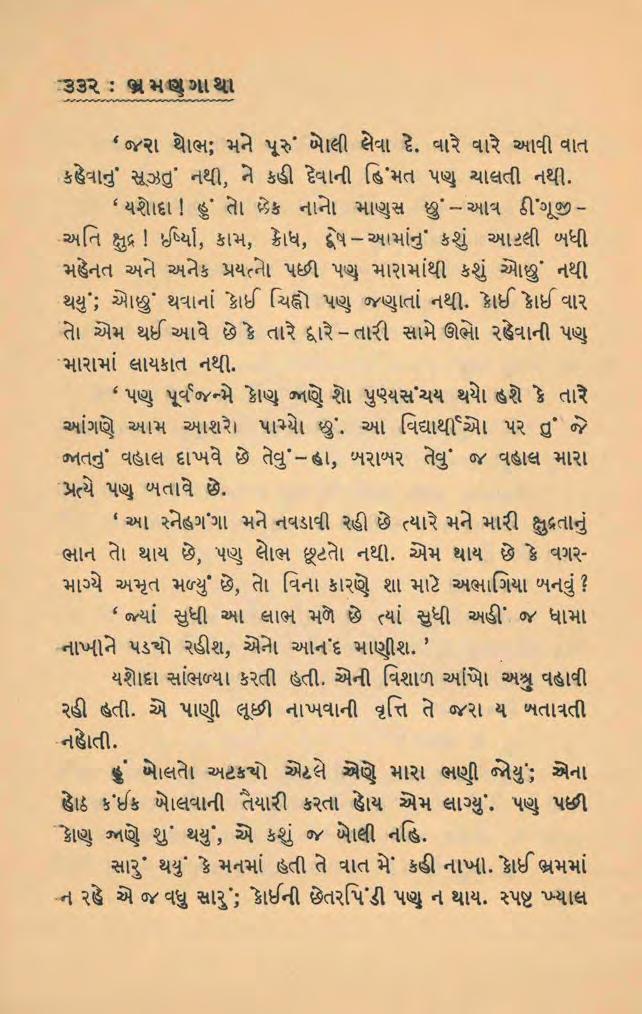 ૩૩૨ : ભ્રમણગાથા
‘જરા થોભ; મને પૂરું બોલી લેવા દે. વારે વારે આવી વાત
કહેવાનું સૂઝતું નથી, ને કહી દેવાની હિંમત પણ ચાલતી નથી.
‘યશોદા! હું તો છેક નાનો માણસ છું–આવ ઠીંગૂજી–
અતિ ક્ષુદ્ર! ઈર્ષ્યા, કામ, ક્રોધ, દ્વેષ–આમાંનું કશું આટલી બધી
મહેનત અને અનેક પ્રયત્નો પછી પણ મારામાંથી કશું ઓછું નથી
થયું; ઓછું થવાનાં કોઈ ચિહ્નો પણ જણાતાં નથી. કોઈ કોઈ વાર
તો એમ થઈ આવે છે કે તારે દ્વારે–તારી સામે ઊભો રહેવાની પણ
મારામાં લાયકાત નથી.
‘પણ પૂર્વજન્મે કોણ જાણે શો પુણ્યસંચય થયો હશે કે તારે
આંગણે આમ આશરો પામ્યો છું. આ વિદ્યાર્થીઓ પર તું જે
જાતનું વહાલ દાખવે છે તેવું–હા, બરાબર તેવું જ વહાલ મારા
પ્રત્યે પણ બતાવે છે.
‘આ સ્નેહગંગા મને નવડાવી રહી છે ત્યારે મને મારી ક્ષુદ્રતાનું
ભાન તો થાય છે, પણ લોભ છૂટતો નથી. એમ થાય છે કે વગર-
માગ્યે અમૃત મળ્યું છે, તો વિના કારણે શા માટે અભાગિયા બનવું?
‘જ્યાં સુધી આ લાભ મળે છે ત્યાં સુધી અહીં જ ધામા
નાખીને પડચો રહીશ, એનો આનંદ માણીશ.’
યશોદા સાંભળ્યા કરતી હતી. એની વિશાળ આંખો અશ્રુ વહાવી
રહી હતી. એ પાણી લૂછી નાખવાની વૃત્તિ તે જરા ય બતાવતી
નહોતી.
હું બોલતો અટકચો એટલે એણે મારા ભણી જોયું; એના
હોઠ કંઈક બોલવાની તૈયારી કરતા હોય એમ લાગ્યું. પણ પછી
કોણ જાણે શું થયું, એ કશું જ બોલી નહિ.
સારું થયું કે મનમાં હતી તે વાત મેં કહી નાખી. કોઈ ભ્રમમાં
ન રહે એ જ વધુ સારું; કોઈની છેતરપિંડી પણ ન થાય. સ્પષ્ટ ખ્યાલ